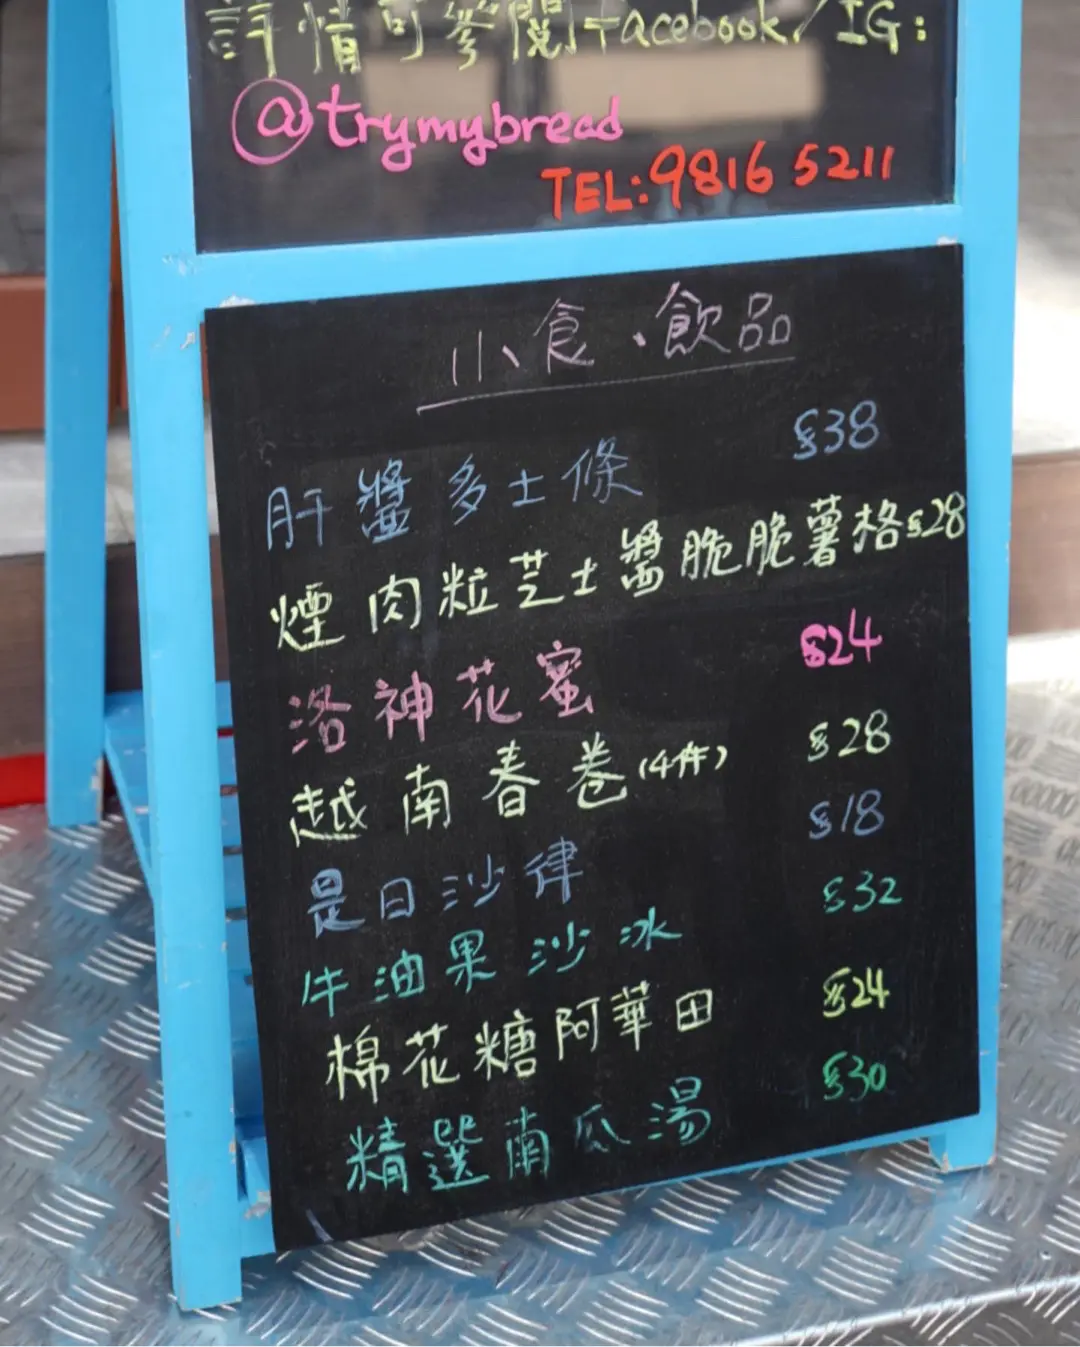 詳情可參閱Facebook/IG:
@trymybread
TEL:9816 5211
小食、飲品
肝醬多士條 $38
煙肉粒芝士醬脆脆薯格 $28
洛神花蜜 $24
越南春卷(4件) $28
是日沙律 $18
牛油果沙冰 $32
棉花糖阿華田 $24
精選南瓜湯 $30